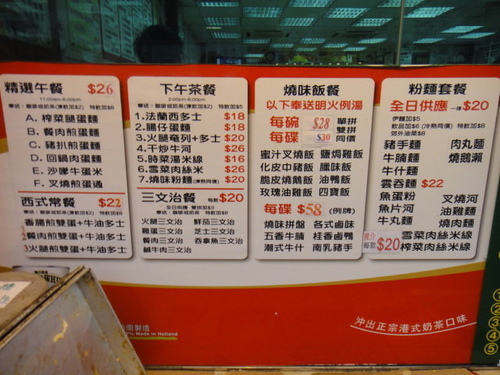 精選午餐 $26
11:00am-6:00pm
A. 榨菜腿蛋麵
B. 餐肉煎蛋麵
C. 豬扒煎蛋麵
D. 回鍋肉蛋麵
E. 沙嗲牛蛋米
F. 叉燒煎蛋通
西式常餐 $22
1香腸煎雙蛋+牛油多士
2餐肉煎雙蛋+牛油多士
3火腿煎雙蛋+牛油多士
下午茶餐
2:00pm-6:00pm
1.法蘭西多士 $18
2.腸仔蛋麵 $18
3.火腿奄列+多士 $20
4.干炒牛河 $26
5.時菜湯米線 $16
6.雪菜肉絲米 $26
7.燒味粉麵 $20
三文治餐 每款 $20
火腿三文治 鮮茄三文治
雞蛋三文治 芝士三文治
餐肉三文治 吞拿魚三文治
鹹牛肉三文治
燒味飯餐
以下奉送明火例湯
每碗 $28 單拼
每碟 $30 雙拼
同價
蜜汁叉燒飯 鹽焗雞飯
化皮中豬飯 臘味飯
脆皮燒鵝飯 油鴨飯
玫瑰油雞飯 四寶飯
每碟 $58 (例牌)
燒味拼盤 各式滷味
五香牛腩 桂香滷鴨
潮式牛什 南乳豬手
粉麵套餐
全日供應 一律 $20
伊麵加$5
豬手麵 肉丸麵
牛腩麵 燒鵝瀨
牛什麵
雲吞麵 $22
魚蛋粉 叉燒河
魚片河 油雞麵
牛丸麵 燒肉麵
每款 $20 雪菜肉絲米線
榨菜肉絲米線
沖出正宗港式奶茶口味
Made in Holland